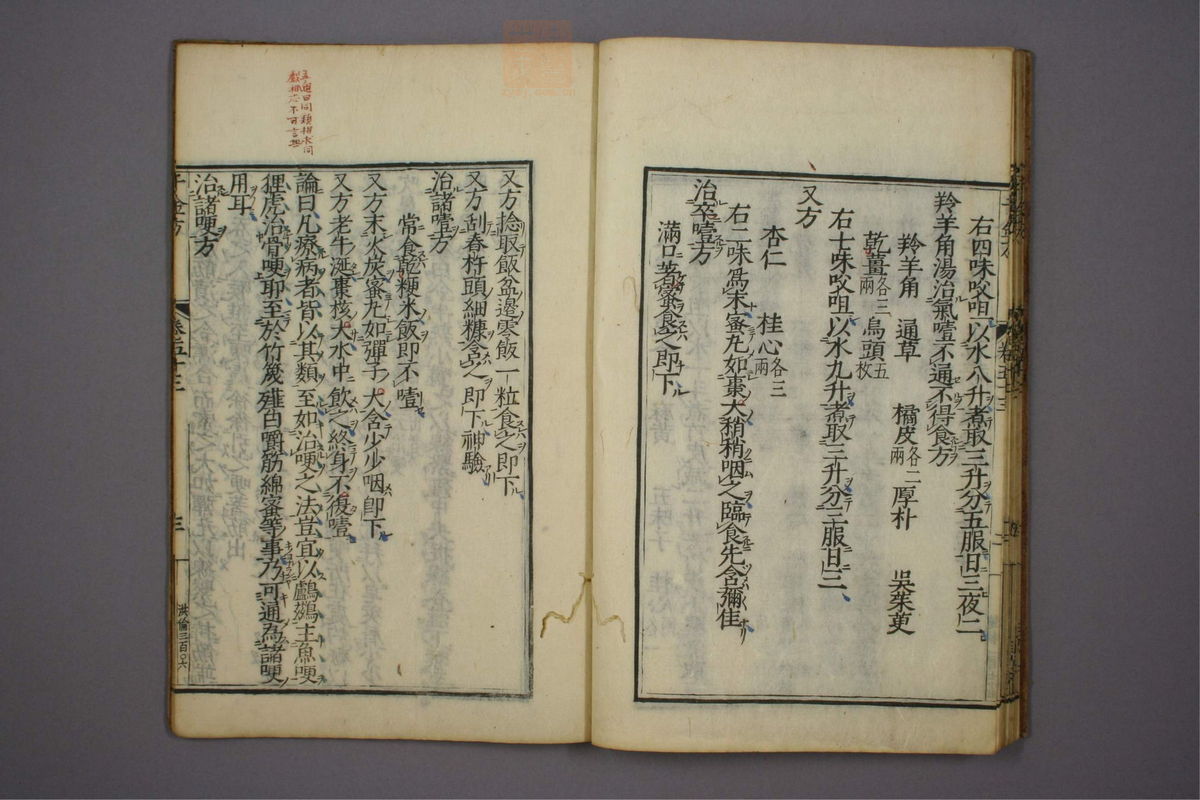 右四味㕮咀以水八升煮取三升分五服日三夜二
羚羊角湯治氣噎不通不得食方
羚羊角 通草 橘皮各二兩 厚朴 吳茱萸
乾薑各三兩 烏頭五枚
右七味㕮咀以水九升煮取三升分三服日三
又方
杏仁 桂心各三兩
右二味爲末蜜丸如棗大稍稍咽之臨食先含彌佳
治卒噎方
滿口著蜜食之即下
又方捻取飯盆邊零飯一粒食之即下
又方刮舂杵頭細糠含之即下神驗
治諸噎方
常食乾粳米飯即不噎
又方末火炭蜜丸如彈子大含少少咽即下
又方老牛涎棗核大水中飲之終身不復噎
論曰凡療病者皆以其類至如治哽之法豈宜以鸕鷀主魚哽
狸虎治骨哽耶至於竹篾薤白嚼筋綿蜜等事乃可通爲諸哽
用耳
治諸哽方
千金方 卷五十三 三
洪倫三百〇六